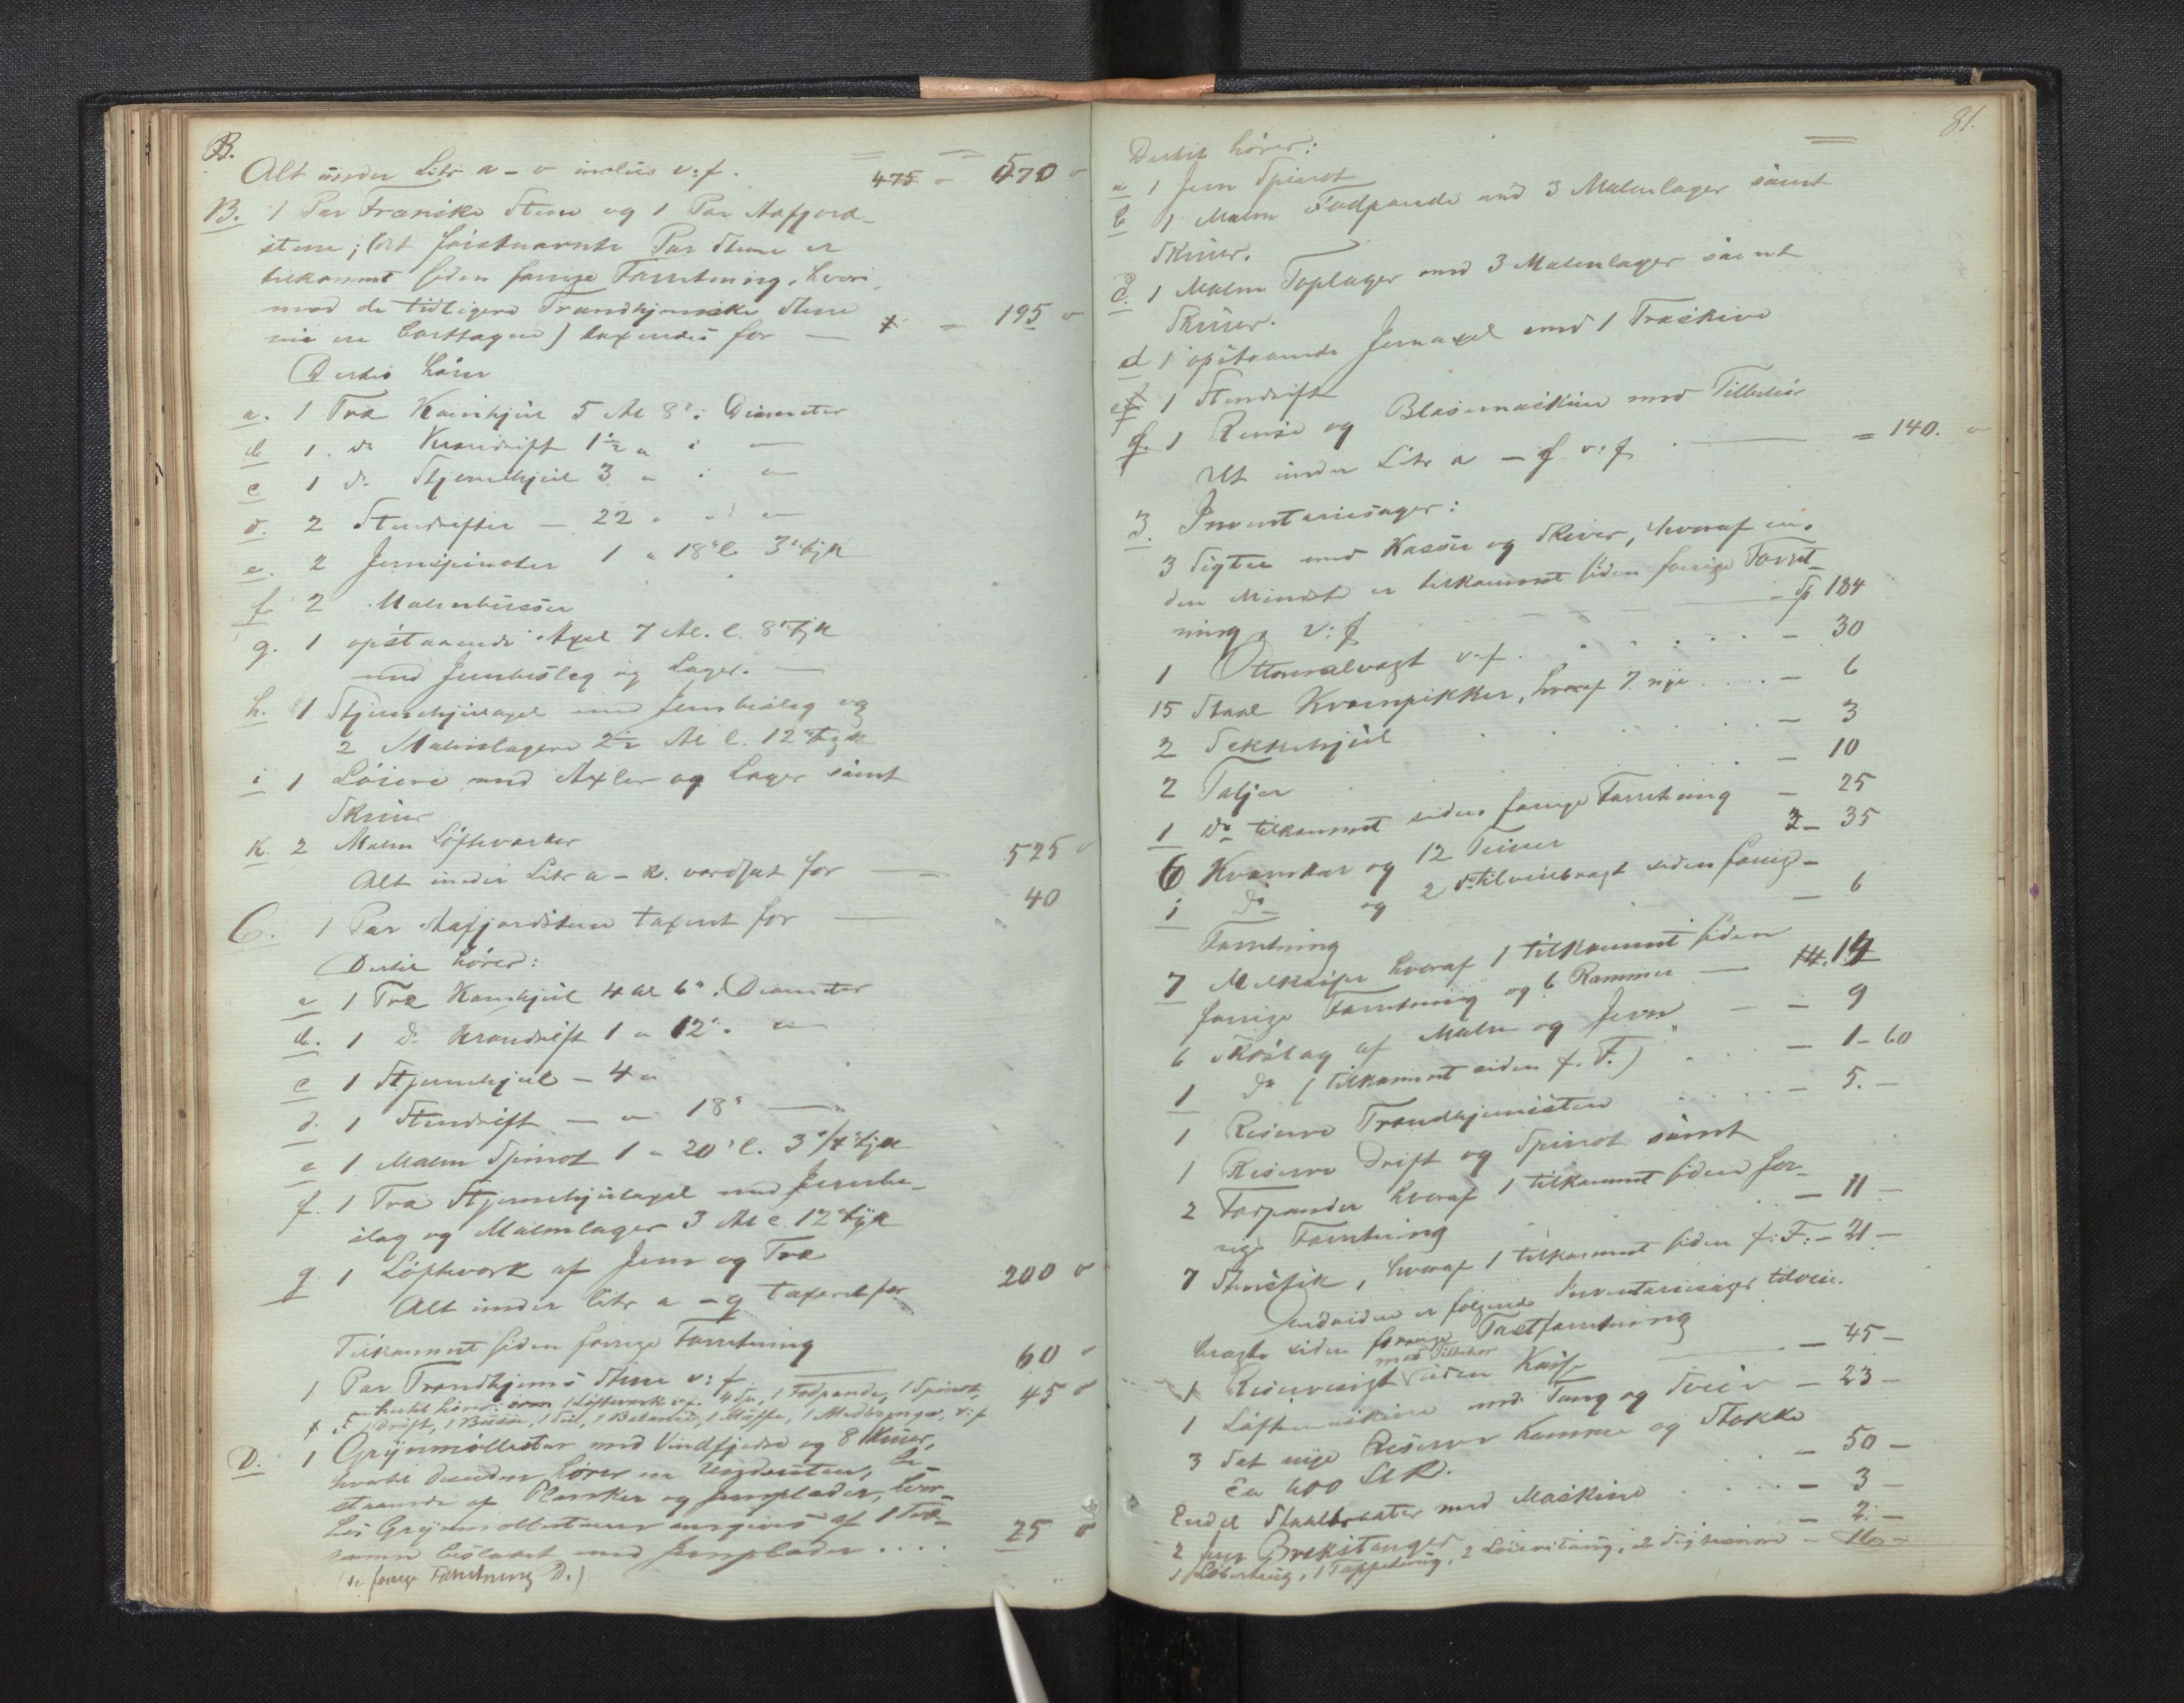 B.
Alt under Litr a - o inclus v: f. 475 " 570 "
B. 1 Par Franske Stene og 1 Par Aafjord-
stene; (det førstnævnte Par Stene er
tilkommet siden forrige Forretning, hvori-
mod de tidligere Trondhjemske Stene
nu ere borttagne) taxeredes for — 195 "
Dertil hører
a. 1 Træ Kamhjul 5 Al 8": Diameter
b 1. do Krondrift 1½ " : "
c 1 do Stjernehjul 3 " : "
d. 2 Stendrifter — 22 " "
e. 2 Jernspinoter 1 " 18" l. 3" tyk
f 2 Malmbusser
g. 1 opstaaende Axel 7 Al. l. 8" tyk
med Jernbeslag og Lager. —
h. 1 Stjernehjulaxel med Jernbeslag og
2 Malmlagere 2½ Al l. 12" tyk
i 1 Løiere med Axler og Lager samt
Skruer
k. 2 Malm Løftværker
Alt under Litr a - k. værdsat for — 525 "
C. 1 Par Aafjordstene taxeret for — 40
Dertil hører:
a 1 Træ Kamhjul 4 Al 6": Diameter
b. 1 do Krondrift 1 " 12": "
c 1 Stjernehjul — 4 "
d. 1 Stendrift — " 18" —
e 1 Malm Spinot 1 " 20" l. 3"/4" tyk
f. 1 Træ Stjernehjulaxel med Jernbe-
slag og Malmlager 3 Al l. 12" tyk
g 1 Løftværk af Jern og Træ
Alt under Litr a - g taxeret for 200 "
Tilkommet siden forrige Forretning
1 Par Trondhjems Stene v: f. — 60 "
hertil hører: 1 Løftværk 1 Fodpande, 1 Spinot, 45 "
1 Drift, 1 Bøsse, 1 1 Balance, 1 Muffe, 1 Medbringer, v: f
D. 1 Grynmøllesten med Vindfjedre og 8 Skruer,
hvortil desuden hører en be-
staaende af Planker og Jernplader,
Grynmøllestenen omgives af 1 Træ-
ramme beslaaet med Jernplader .... 25 "
(se forrige Forretning D.)
81.
Dertil hører:
a 1 Jern Spinot
b 1 Malm Fodpande med 3 Malmlager samt
Skruer.
c. 1 Malm Toplager med 3 Malmlager samt
Skruer.
d 1 opstaaende Jernaxel med 1 Træskive
e 1 Stendrift
f. 1 Rense og Blæsemaskine med Tilbehør
Alt under Litr a — f v: f. — = 140. "
3. Inventariesager:
3 Sigter med Kasser og Skiver, hvoraf en,
den Mindste er tilkommet siden forrige Forret-
ning, v: f — - Sp 184
1 Ottomalvægt v: f. . . . . — 30
15 Staal Kvernpikker, hvoraf 7 nye . . . . — 6
2 Sekkehjul . . . . — 3
2 Taljer . . . . — 10
1 do tilkommet siden forrige Forretning — 25
6 Kvernkar og 12 Teiner 2 — 35
1 do og 2 do tilveiebragt siden forrige —
Forretning — 6
7 Melkasser hvoraf 1 tilkommet siden
forrige Forretning og 6 Rammer — 14
6 Skoslag af Malm og Jern — — 9
1 do (tilkommet siden f. F.) . . — 1 - 60
1 Reserve Trondhjemssten . . . . — 5. —
1 Reserve Drift og Spinot samt
2 Fodpander hvoraf 1 tilkommet siden for-
rige Forretning . . — 11 —
7 hvoraf 1 tilkommet siden f: F: — 21 —
Endvidere er følgende Inventariesager tilveie-
bragte siden forrige Taxtforretning
1 Reservesigt med Tilbehør uden Kasse — 45 —
1 Løftemaskine med Tang og Sveiv — 23 —
3 Set nye Reserver Kamme og Stokke
Ca 400 Stk. — 50 —
Endel Staaltraater med Maskine . . . . — 3 —
2 Jern Brækstænger — 2. —
1 1 Tappetang, 2 — 16 —